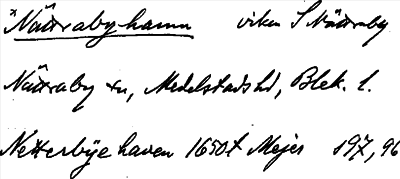 "Nättrabyhamn viken S Nättraby
Nättraby sn, Medelstads hd, Blek. l.
Netterbÿe haven 1650t Mejer 197, 96